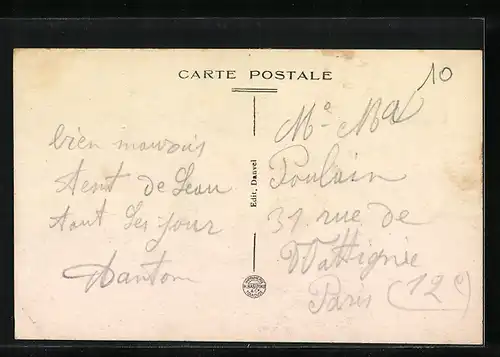 CARTE POSTALE
10
bien mauvais
tent de Leau
tout les jour
Edit. Danvel
Me Ma
Poulain
31 rue de
Wattignie
Paris (12e)